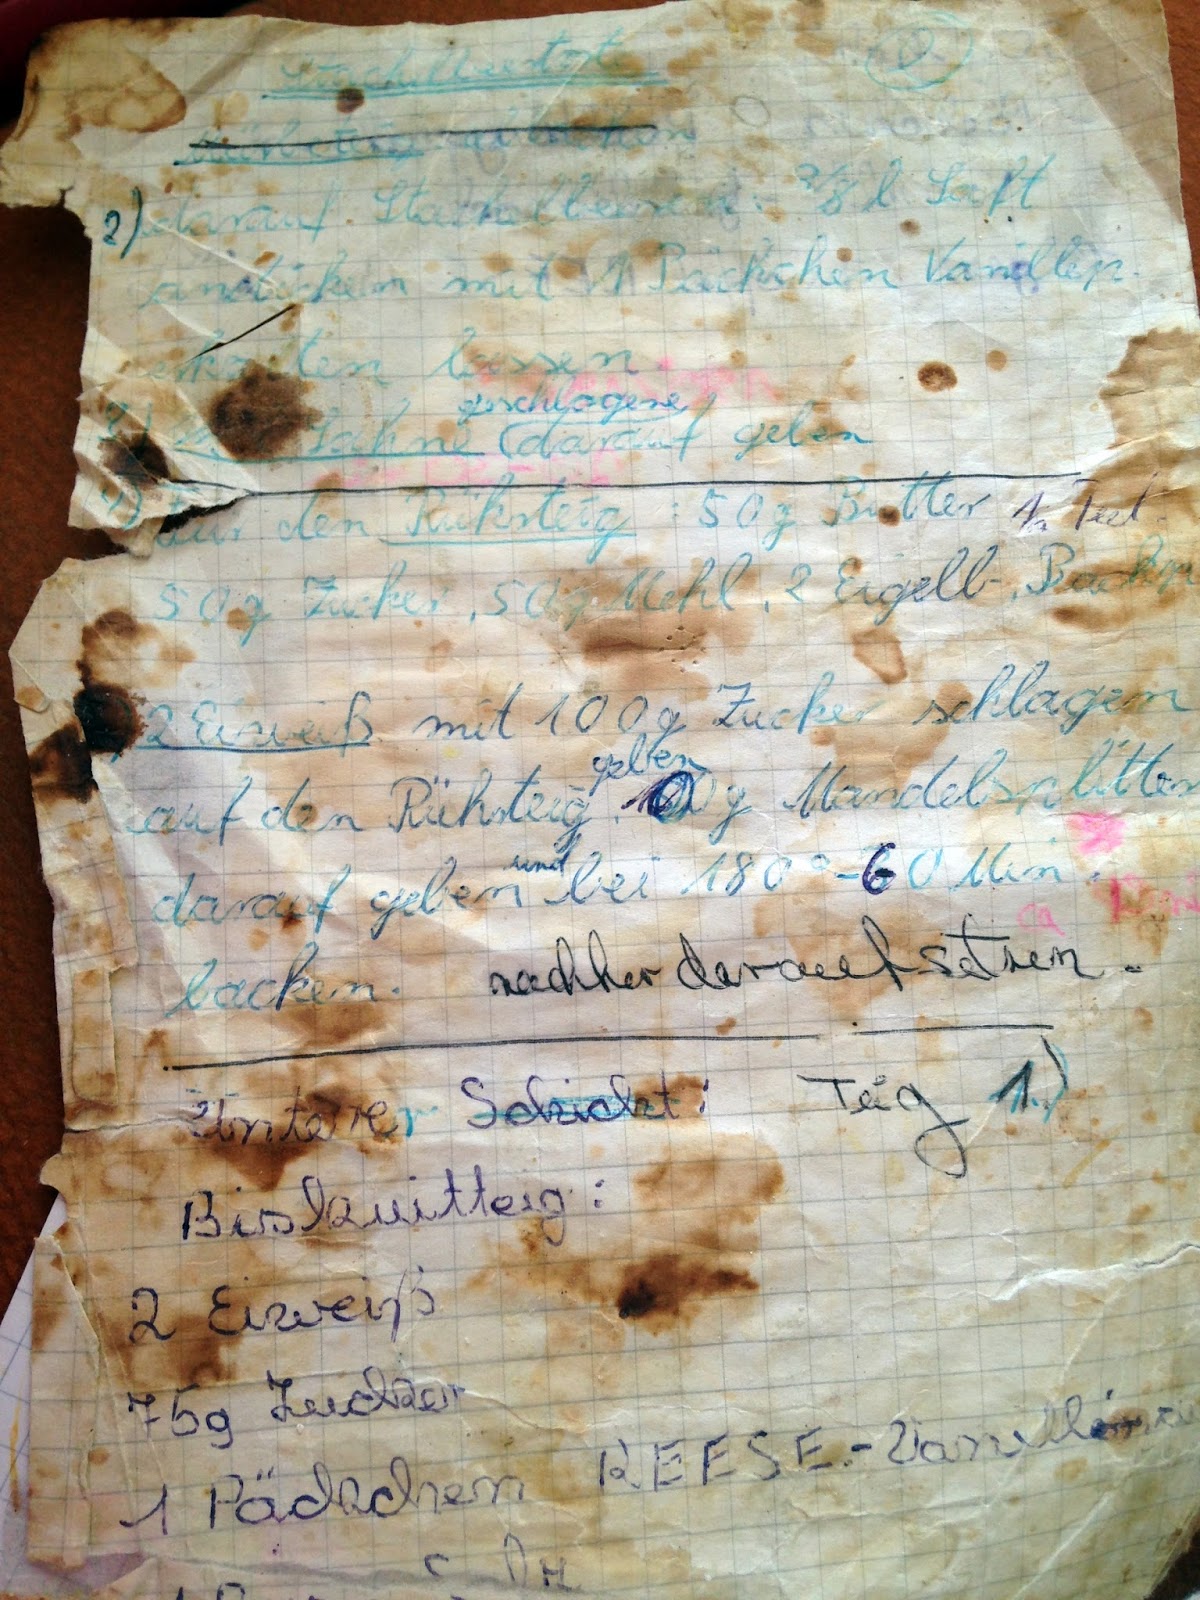 2
Rührteig
2) darauf Stachelbeeren: 3/8 l Saft
andicken mit 1 Päckchen Vanillep.
erkalten lassen.
3) Sahne (geschlagene darauf geben
4) Für den Rührteig: 50g Butter 1/2 Teel.
50g Zucker, 50g Mehl, 2 Eigelb, Backp
2 Eiweiß mit 100g Zucker schlagen
auf den Rührteig geben, g Mandelsplitter
darauf geben und bei 180° - 60 Min.
ca
backen. nachher daraufsetzen.
Unterer Schicht: Teig 1.)
Biskuitteig:
2 Eiweiß
75g Zucker
1 Päckchen REESE-Vanillin